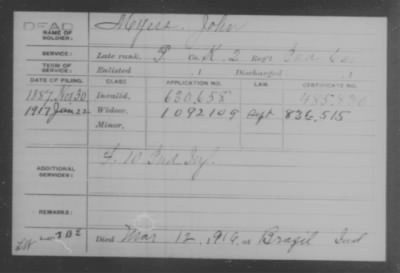 DEAD
NAME OF SOLDIER: Myers John
SERVICE: Late rank, P. Co. K, 2 Reg't Ind Cav
TERM OF SERVICE: Enlisted , 1 Discharged , 1
DATE OF FILING. CLASS. APPLICATION NO. LAW. CERTIFICATE NO.
1887 Nov 30 Invalid, 630,658 485,830
1917 Jan 22 Widow, 1092109 Sept 836,515
Minor,
ADDITIONAL SERVICES: F. 10 Ind Inf.
REMARKS:
Died Mar 12, 1916, at Brazil Ind